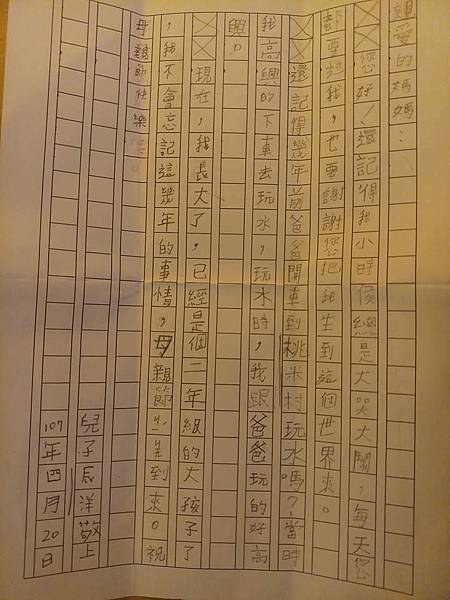 親愛的媽媽：
您好！還記得我小時侯總是大哭大鬧，每天您
都要我，也要謝謝您把我生到這個世界來。
還記得幾年前爸爸開車到桃米村玩水嗎？當時
我高興的下車去玩水，玩水時，我跟爸爸玩的好高
興。
現在，我長大了，已經是個二年級的大孩子了
，我不會忘記這幾年的事情，母親節到來。祝
母親節快樂
兒子辰洋敬上
107年四月20日